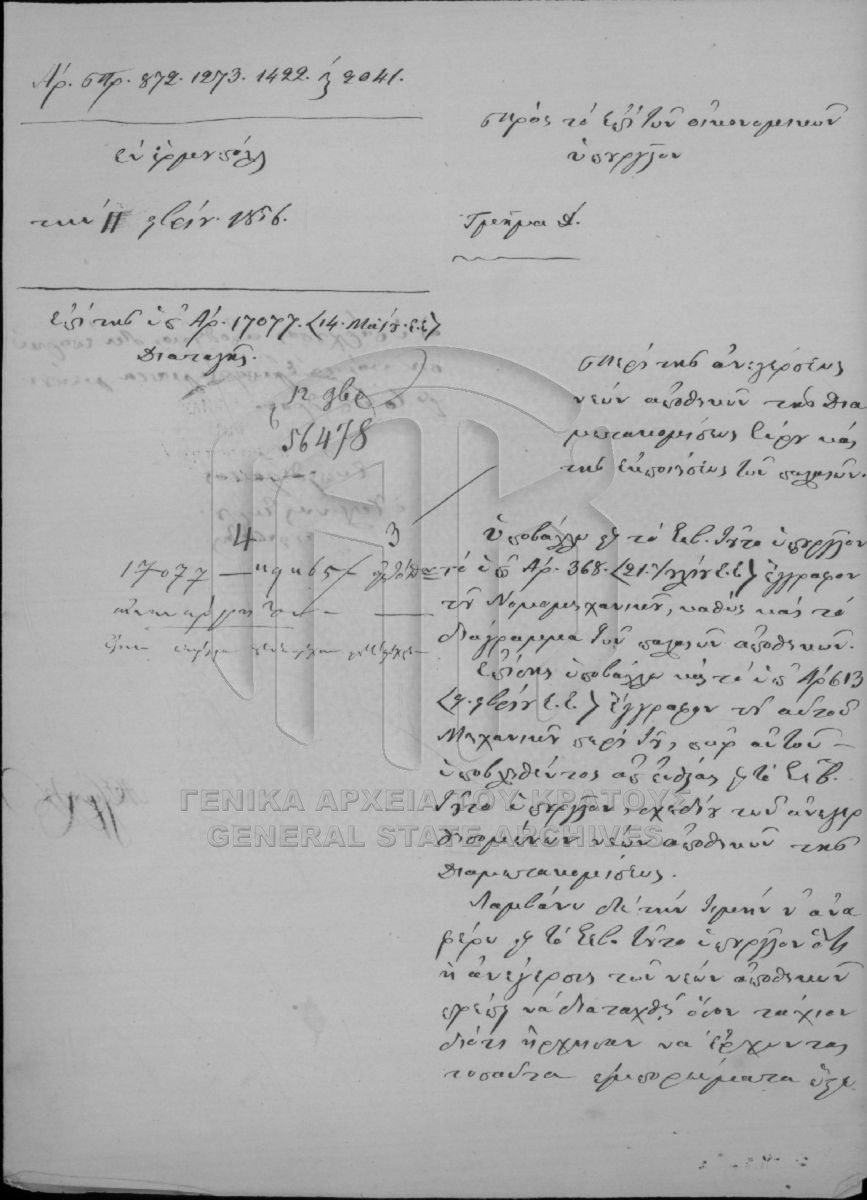 Ἀρ. Πρ. 872. 1273. 1422. & 2041.
Ἐν Ἑρμουπόλει
τὴν 11 9βρίου 1856.
Πρὸς τὸ ἐπὶ τῶν Οἰκονομικῶν
Ὑπουργεῖον
Τμῆμα Α.
Ἐπὶ τῆς ὑπ' Ἀρ. 17077. (14. Μαΐου ἐ.ἔ)
Διαταγῆς.
Περὶ τῆς ἀνεγέρσεως
νέων ἀποθηκῶν τῆς Δια
μετακομίσεως Σύρου καὶ
τῆς ἐκποιήσεως τῶν παλαιῶν.
12 9βρ
56478
4 3
17077
Ὑποβάλλω εἰς τὸ Σεβ. τοῦτο ὑπουργεῖον
τὸ ὑπ' Ἀρ. 368. (21. Ἰουλίου ἐ.ἔ) ἔγγραφον
τοῦ Νομομηχανικοῦ, καθὼς καὶ τὸ
διάγραμμα τῶν παλαιῶν ἀποθηκῶν.
Ἐπίσης ὑποβάλλω καὶ τὸ ὑπ' Ἀρ 613
9βρίου ἐ.ἔ.) ἔγγραφον τοῦ αὐτοῦ
Μηχανικοῦ περὶ τοῦ, παρ' αὐτοῦ
ὑποβληθέντος ἀπ' εὐθείας εἰς τὸ Σεβ.
τοῦτο ὑπουργεῖον, σχεδίου τῶν ἀνεγερ
θησομένων νέων ἀποθηκῶν τῆς
Διαμετακομίσεως.
Λαμβάνω δὲ τὴν τιμὴν ν' ἀνα
φέρω εἰς τὸ Σεβ. τοῦτο ὑπουργεῖον ὅτι
ἡ ἀνέγερσις τῶν νέων ἀποθηκῶν
πρέπει νὰ διαταχθῇ ὅσον τάχιον
διότι ἤρχισαν νὰ ἔρχωνται
τοσαῦτα ἐμπορεύματα ὥστε
ΓΕΝΙΚΑ ΑΡΧΕΙΑ ΤΟΥ ΚΡΑΤΟΥΣ
GENERAL STATE ARCHIVES